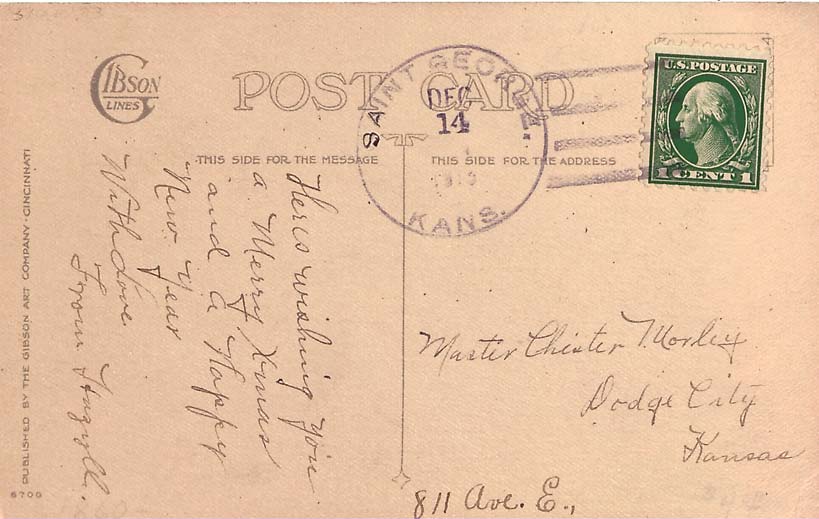 GIBSON
LINES
POST CARD
SAINT GEORGE.
DEC
14
KANS.
U.S. POSTAGE
1 CENT 1
THIS SIDE FOR THE MESSAGE
THIS SIDE FOR THE ADDRESS
Heres wishing you
a Merry Xmas
and a Happy
New Year
With Love
From
Master Chester Morley
Dodge City
Kansas
811 Ave. E.,
PUBLISHED BY THE GIBSON ART COMPANY · CINCINNATI
6700